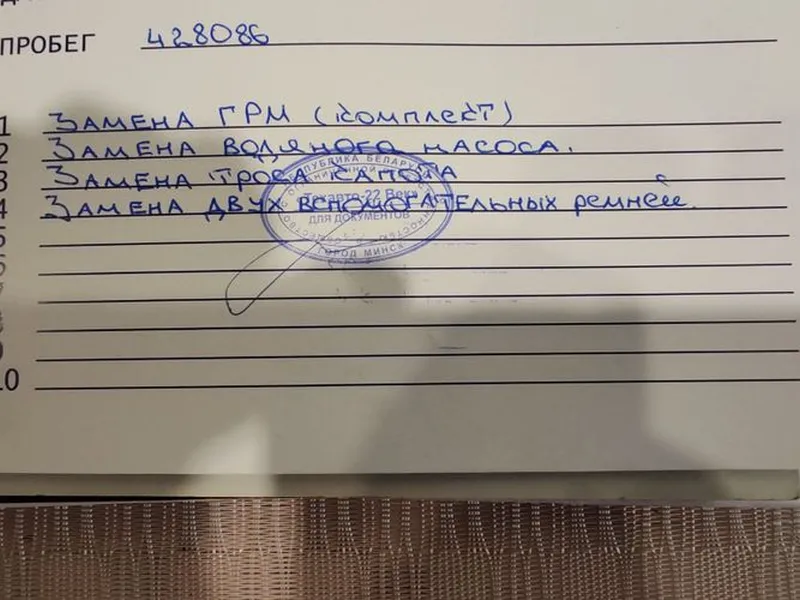 ПРОБЕГ 428086
1 ЗАМЕНА ГРМ (КОМПЛЕКТ)
2 ЗАМЕНА ВОДЯНОГО НАСОСА.
3 ЗАМЕНА ТРОСА КАПОТА
4 ЗАМЕНА ДВУХ ВСПОМОГАТЕЛЬНЫХ РЕМНЕЙ.
РЕСПУБЛИКА БЕЛАРУСЬ
22 Век»
ДЛЯ ДОКУМЕНТОВ
ГОРОД МИНСК
5
6
7
8
9
10